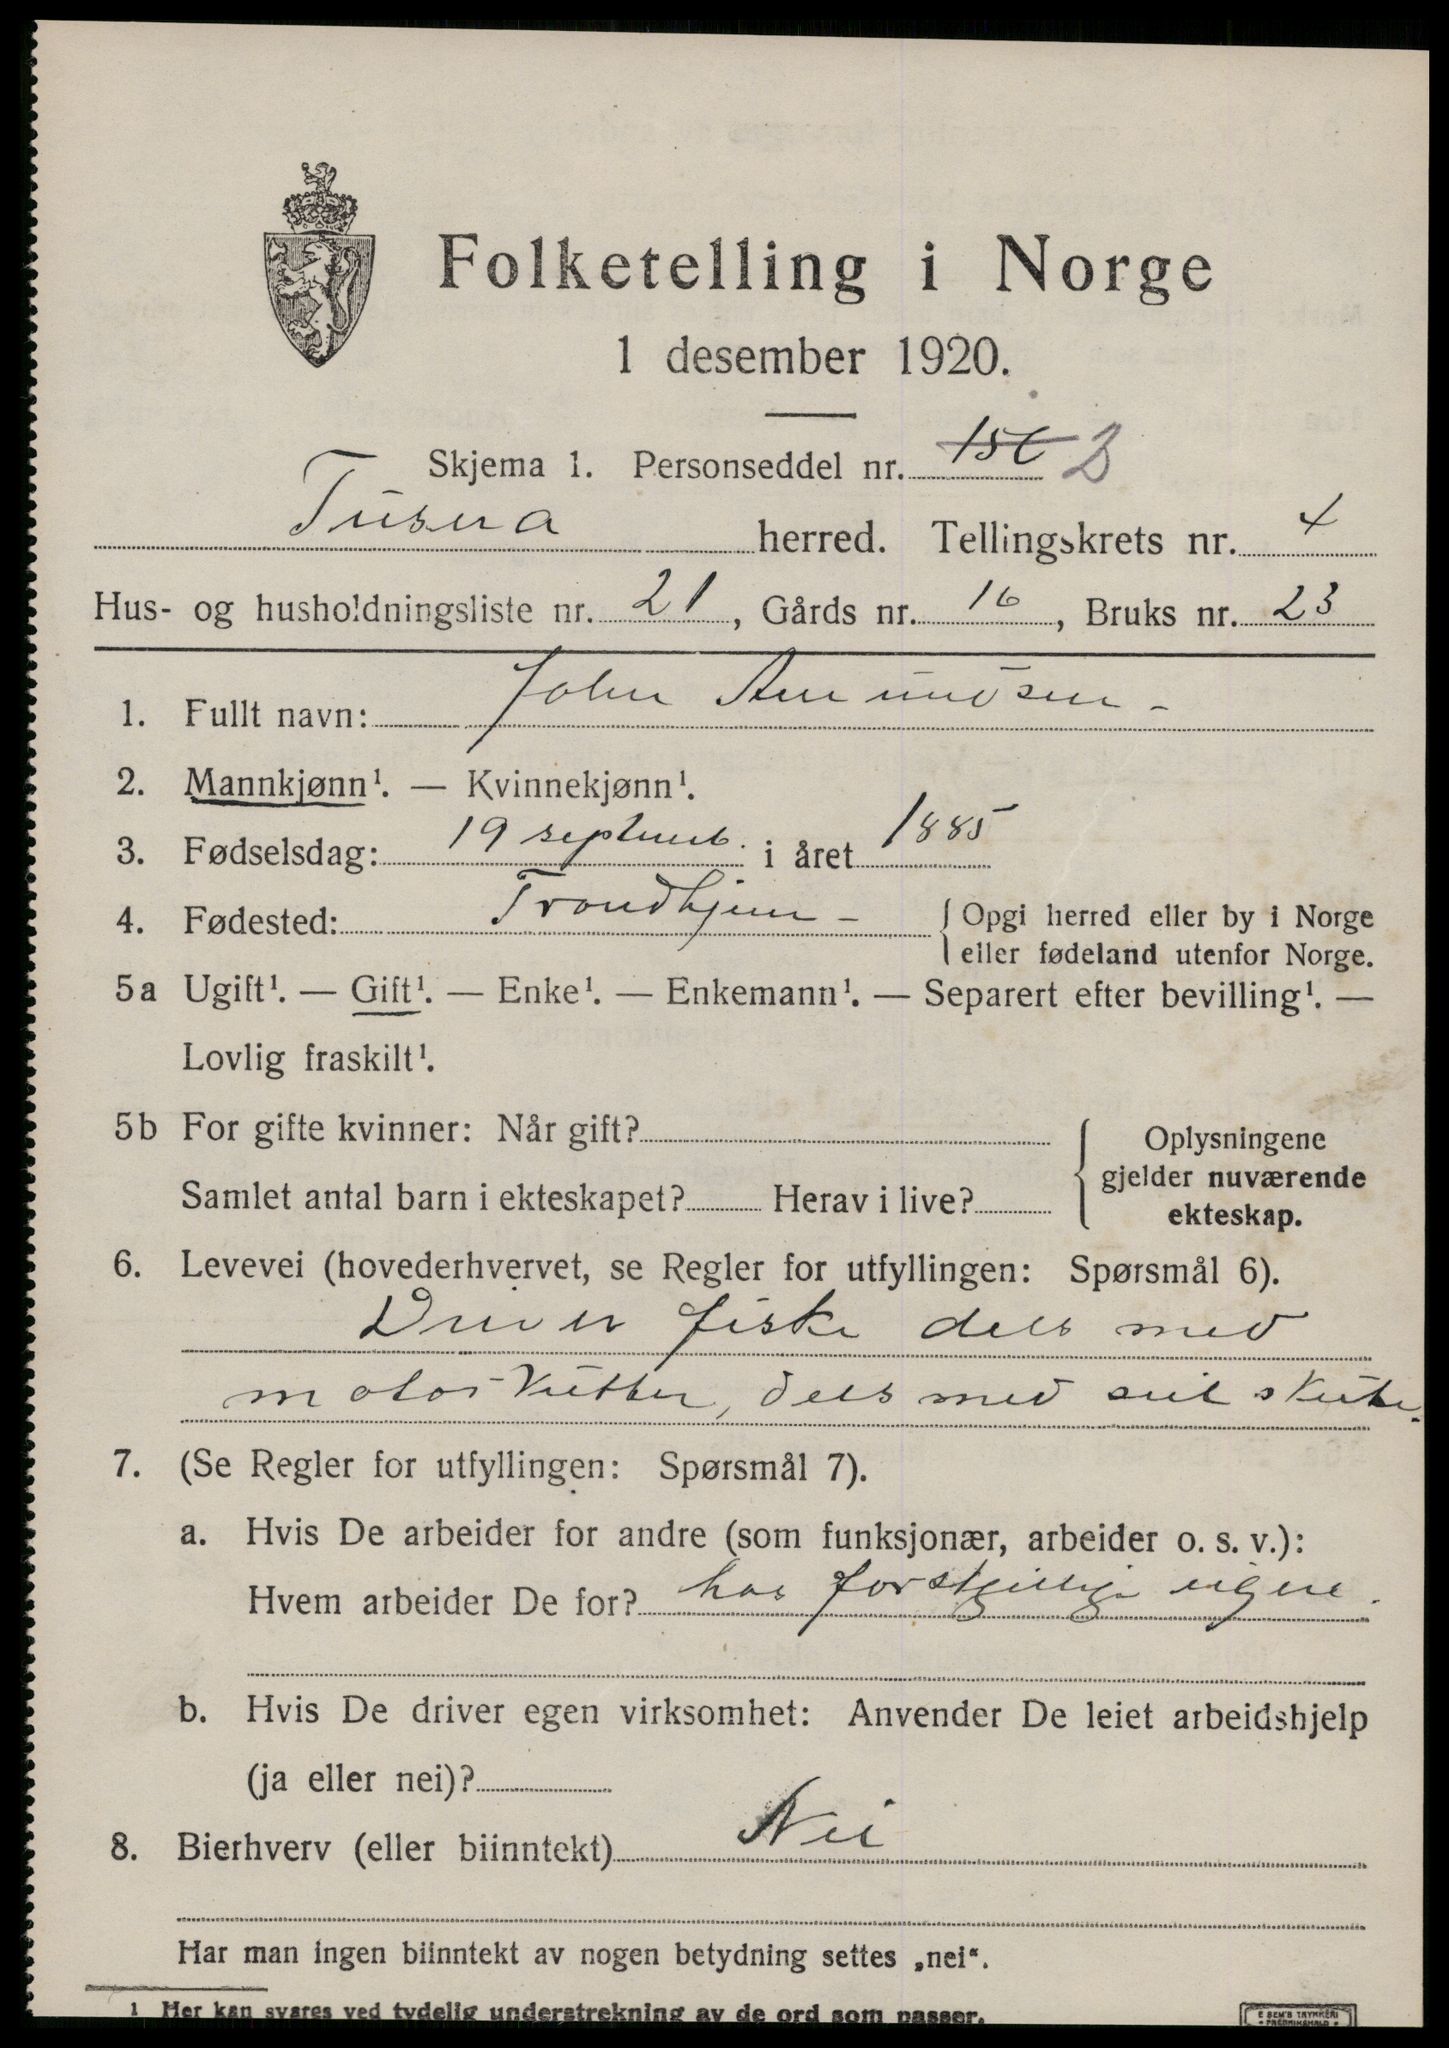 Folketelling i Norge
1 desember 1920.
Skjema 1. Personseddel nr. 2
Tusna herred. Tellingskrets nr. 4
Hus- og husholdningsliste nr. 21, Gårds nr. 16, Bruks nr. 23
1. Fullt navn: John Amundsen -
2. Mannkjønn¹. — Kvinnekjønn¹.
3. Fødselsdag: 19 septemb. i året 1885
4. Fødested: Trondhjem - { Opgi herred eller by i Norge
eller fødeland utenfor Norge.
5a Ugift¹. — Gift¹. — Enke¹. — Enkemann¹. — Separert efter bevilling¹. —
Lovlig fraskilt¹.
5b For gifte kvinner: Når gift?
Samlet antal barn i ekteskapet? Herav i live?
{ Oplysningene
gjelder nuværende
ekteskap.
6. Levevei (hovederhvervet, se Regler for utfyllingen: Spørsmål 6).
Driver fiske dels med
motorkutter, dels med seil skute.
7. (Se Regler for utfyllingen: Spørsmål 7).
a. Hvis De arbeider for andre (som funksjonær, arbeider o. s. v.):
Hvem arbeider De for? hos forskjellige eigere.
b. Hvis De driver egen virksomhet: Anvender De leiet arbeidshjelp
(ja eller nei)?
8. Bierhverv (eller biinntekt) Nei
Har man ingen biinntekt av nogen betydning settes „nei“.
1 Her kan svares ved tydelig understrekning av de ord som passer.
E SEM'S TRYKKERI
FREDRIKSHALD